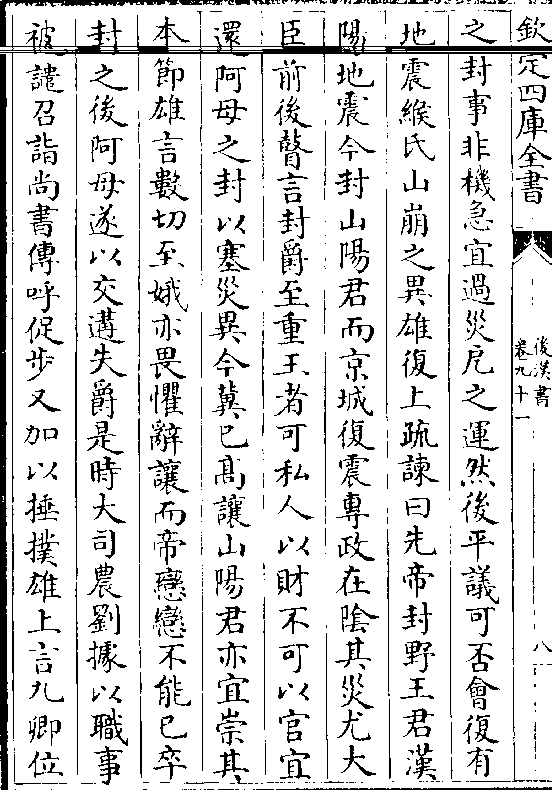 欽定四庫全書
後漢書
卷九十一
八
之封事非機急宜過災戹之運然後平議可否會復有
地震緱氏山崩之異雄復上疏諫曰先帝封野王君漢
陽地震今封山陽君而京城復震專政在陰其災尤大
臣前後瞽言封爵至重王者可私人以財不可以官宜
還阿母之封以塞災異今冀已高讓山陽君亦宜崇其
本節雄言數切至娥亦畏懼辭讓而帝戀戀不能已卒
封之後阿母遂以交遘失爵是時大司農劉據以職事
被譴召詣尚書傳呼促步又加以捶撲雄上言九卿位